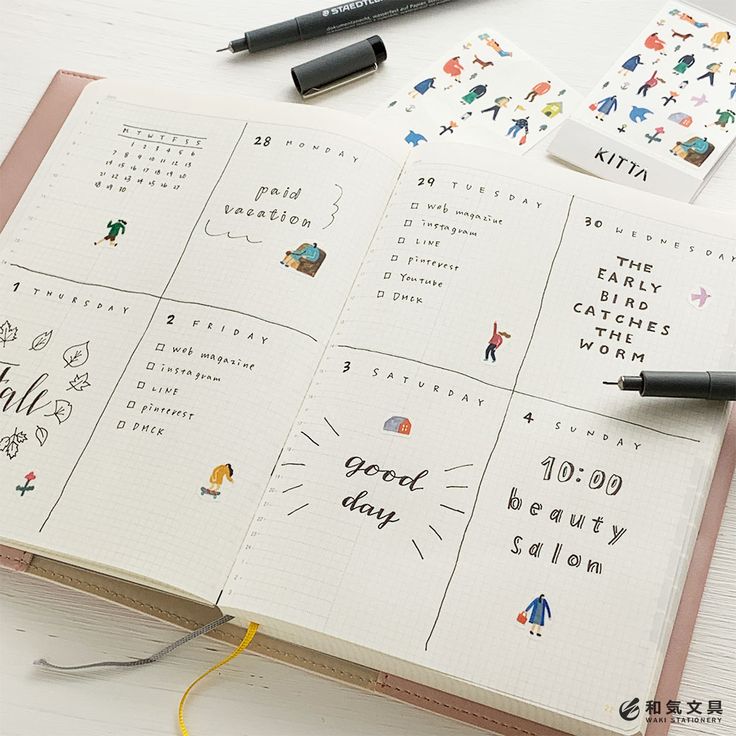 STAEDTLER
KITTA
M T W T F S S
1 2 3 4 5 6
7 8 9 10 11 12 13
14 15 16 17 18 19 20
21 22 23 24 25 26 27
28 29 30
28 MONDAY
paid
vacation
29 TUESDAY
web magazine
instagram
LINE
pinterest
Youtube
DMCK
30 WEDNESDAY
THE
EARLY
BIRD
CATCHES
THE
WORM
1 THURSDAY
Fall
2 FRIDAY
web magazine
instagram
LINE
pinterest
DMCK
3 SATURDAY
good
day
4 SUNDAY
10:00
beauty
salon
和気文具
WAKI STATIONERY